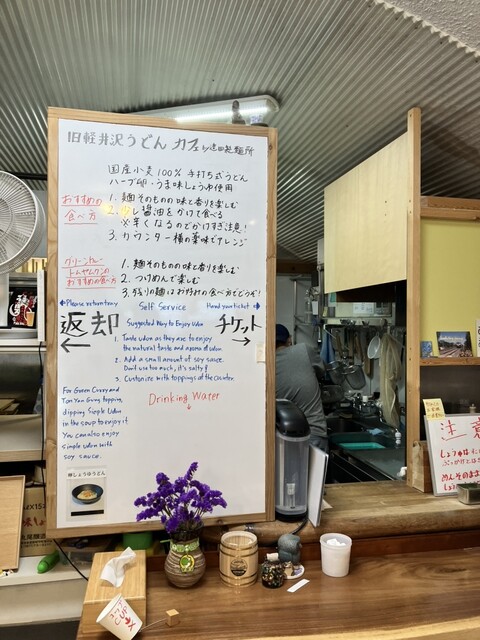 旧軽井沢うどんカフェ
国産小麦100% 手打ち式うどん
ハーブ卵・うま味しょうゆ使用
おすすめの
食べ方
1. 麺そのものの味と香りを楽しむ
2. 少し醤油をかけて食べる
※辛くなるのでかけすぎ注意!
3. カウンター横の薬味でアレンジ
グリーンカレー
トムヤムクンの
おすすめの食べ方
1. 麺そのものの味と香りを楽しむ
2. つけめんで楽しむ
3. 残りの麺はお好みの食べ方でどうぞ!
←Please return tray
Self Service
Hand your ticket→
返却
←
Suggested Way to Enjoy Udon
チケット
→
1. Taste udon as they are to enjoy
the natural taste and aroma of udon
2. Add a small amount of soy sauce.
Don't use too much, it's salty!
3. Customize with toppings at the counter
For Green Curry and
Tom Yam Gung topping,
dipping Simple Udon
in the soup to enjoy it.
You can also enjoy
simple udon with
soy sauce.
Drinking Water
↓
しょうゆうどん
注意
しょうゆは
めんそのまま
CUP